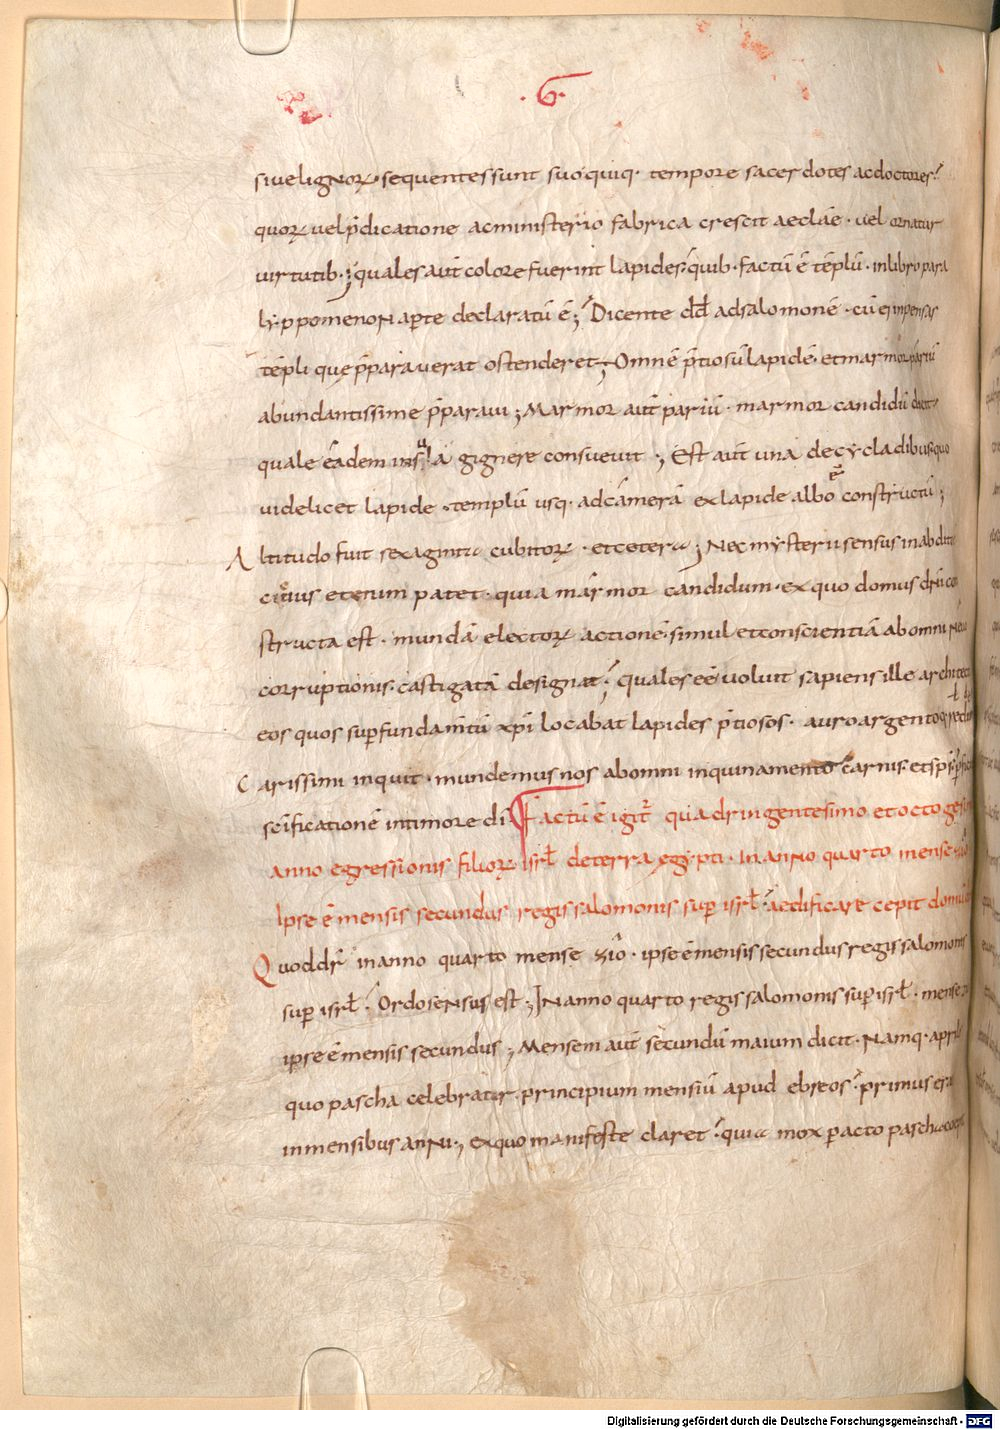 ·6·
siue lignoꝝ · sequentes sunt suo quiq· tempore sacerdotes ac doctores?
quoꝝ uel p̄dicatione ac ministerio fabrica crescit aeclae · uel ornatur
uirtutib·; quales aut̄ colore fuerint lapides? quib· factū ē tēplū · in libro para
ly·ppomenon aperte declaratū ē; Dicente dd̄ ad salomonē · cū ei inpensas
tēpli que p̄parauerat ostenderet; Omnē p̄tiosū lapidē · et marmor pariū
abundantissime p̄paraui; Marmor aut̄ pariū · marmor candidū dicit
quale eadem insula gignere consueuit; Est aut̄ una de cycladibus · quo
uidelicet lapide · templū usq· ad camerā ex lapide albo constructū;
Altitudo fuit sexaginta cubitoꝝ · et cetera; Nec mysterii sensus in abdito
citius et enim patet · quia marmor candidum · ex quo domus dn̄i con
structa est · mundā electoꝝ actionē · simul et conscientiā ab omni neuo
corruptionis castigatā designat? quales eē uoluit sapiens ille architect
eos quos sup fundamtū xpi locabat lapides p̄tiosos · auro argento q;
Carissimi inquit · mundemus nos ab omni inquinamento carnis et sps?
sc̄ificationē in timore di Factū ē igit̄ quadringentesimo et octogesimo
anno egressionis filioꝝ isrl̄ de terra egypti · In anno quarto mense zio
Ipse ē mensis secundus regis salomonis sup isrl̄? aedificare cepit domū
Quod dr̄ in anno quarto mense zio · ipse ē mensis secundus regis salomonis
sup isrl̄? Ordo sensus est · In anno quarto regis salomonis sup isrl̄ · mense zio
ipse ē mensis secundus; Mensem aut̄ secundū maium dicit · Namq· aprilis
quo pascha celebratur · principium mensiū apud ebreos? primus erat
in mensibus anni; ex quo manifeste claret? quia mox pacto pascha
Digitalisierung gefördert durch die Deutsche Forschungsgemeinschaft · DFG